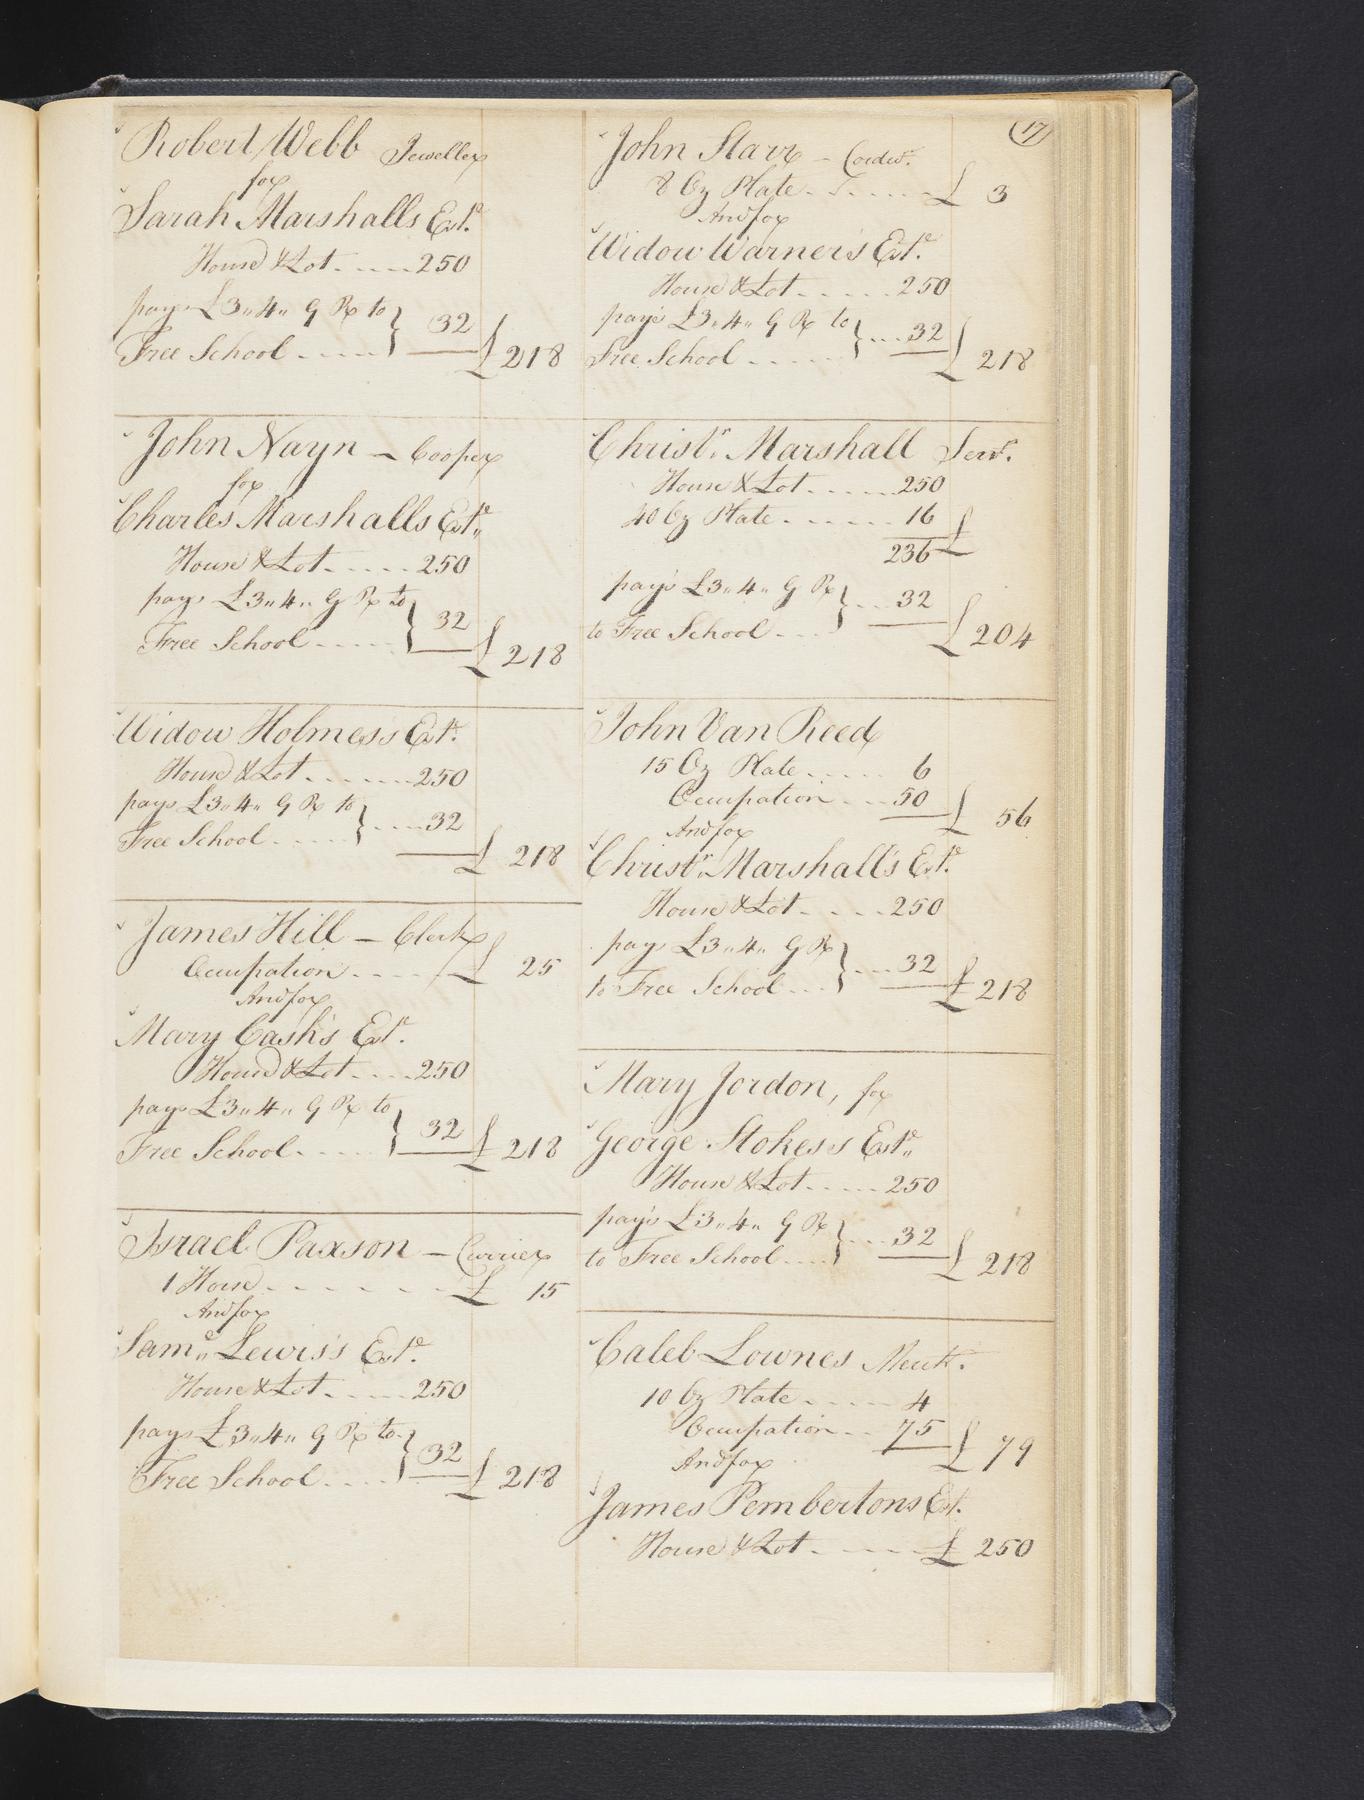 Robert Webb Jeweller
for
Sarah Marshalls Estе.
House & Lot ..... 250
pays £3,,4,, G R to } 32
Free School ..... £ 218
John Nayn – Cooper
for
Charles Marshalls Este.
House & Lot ..... 250
pays £3,,4,, G R to } 32
Free School ..... £ 218
Widow Holmes's Este.
House & Lot ....... 250
pays £3,,4,, G R to } .... 32
Free School ..... £ 218
James Hill – Clerk
Occupation ..... £ 25
And for
Mary Cash's Este.
House & Lot .... 250
pays £3,,4,, G R to } 32
Free School ..... £ 218
Israel Paxson – Currier
1 Horse ....... £ 15
And for
Saml. Lewis's Este.
House & Lot ..... 250
pays £3,,4,, G R to } 32
Free School .... £ 218
(17)
John Starr – Cordwr.
8 Oz Plate ...... £ 3
And for
Widow Warner's Este.
House & Lot ..... 250
pays £3,,4,, G R to } ... 32
Free School ..... £ 218
Christr. Marshall Senr.
House & Lot ..... 250
40 Oz Plate ...... 16
236 £
pays £3,,4,, G R } ... 32
to Free School ... £ 204
John Van Reed
15 Oz Plate ..... 6
Occupation ... 50 £ 56
And for
Christr. Marshall's Este.
House & Lot .... 250
pays £3,,4,, G R } ... 32
to Free School ... £ 218
Mary Jordon, for
George Stokes's Este.
House & Lot ..... 250
pays £3,,4,, G R } ... 32
to Free School .... £ 218
Caleb Lownes Mercht.
10 Oz Plate ..... 4
Occupation ... 75 £ 79
And for
James Pembertons Est.
House & Lot ..... £ 250